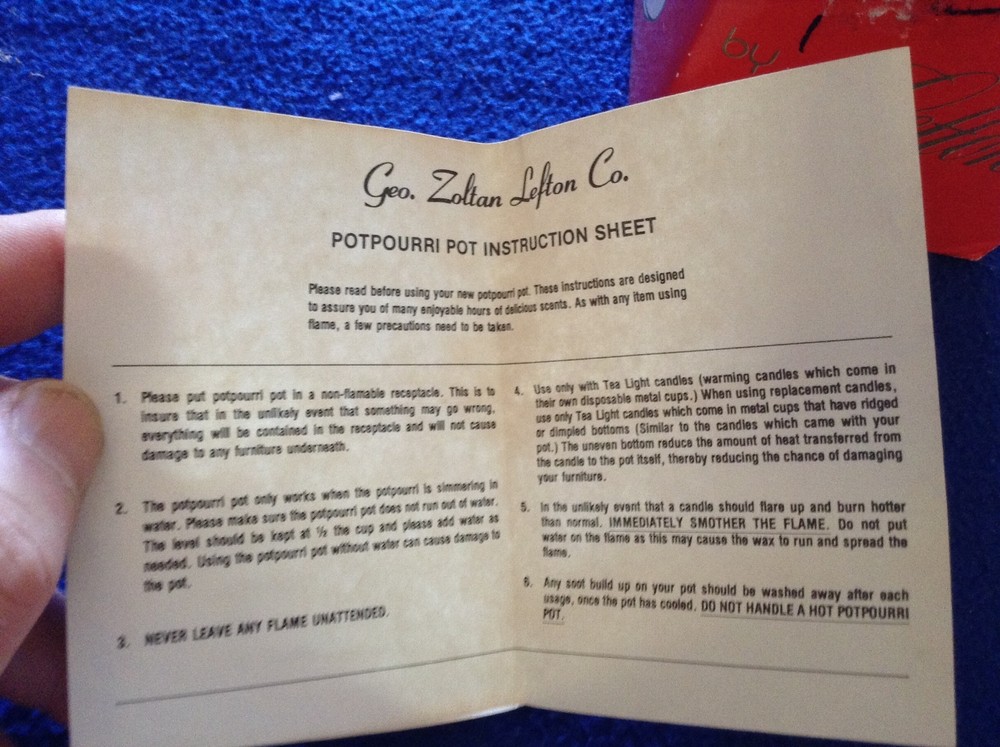 by
Geo. Zoltan Lefton Co.
POTPOURRI POT INSTRUCTION SHEET
Please read before using your new potpourri pot. These instructions are designed
to assure you of many enjoyable hours of delicious scents. As with any item using
flame, a few precautions need to be taken.
1. Please put potpourri pot in a non-flamable receptacle. This is to
insure that in the unlikely event that something may go wrong,
everything will be contained in the receptacle and will not cause
damage to any furniture underneath.
2. The potpourri pot only works when the potpourri is simmering in
water. Please make sure the potpourri pot does not run out of water.
The level should be kept at ½ the cup and please add water as
needed. Using the potpourri pot without water can cause damage to
the pot.
3. NEVER LEAVE ANY FLAME UNATTENDED.
4. Use only with Tea Light candles (warming candles which come in
their own disposable metal cups.) When using replacement candles,
use only Tea Light candles which come in metal cups that have ridged
or dimpled bottoms (Similar to the candles which came with your
pot.) The uneven bottom reduce the amount of heat transferred from
the candle to the pot itself, thereby reducing the chance of damaging
your furniture.
5. In the unlikely event that a candle should flare up and burn hotter
than normal. IMMEDIATELY SMOTHER THE FLAME. Do not put
water on the flame as this may cause the wax to run and spread the
flame.
6. Any soot build up on your pot should be washed away after each
usage, once the pot has cooled. DO NOT HANDLE A HOT POTPOURRI
POT.